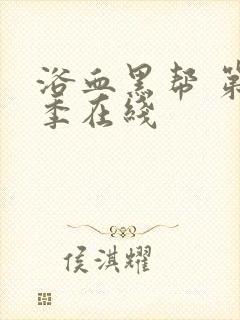 浴血黑帮 第
季在线
侯淇耀